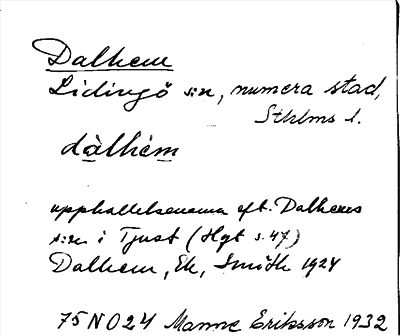 Dalhem
Lidingö s:n, numera stad,
Sthlms l.
dàlhèm
uppkallelsenamn eft. Dalhems
s:n i Tjust (Hgt s. 47)
Dalhem, Ek, Smith 1924
75NO24 Manne Eriksson 1932